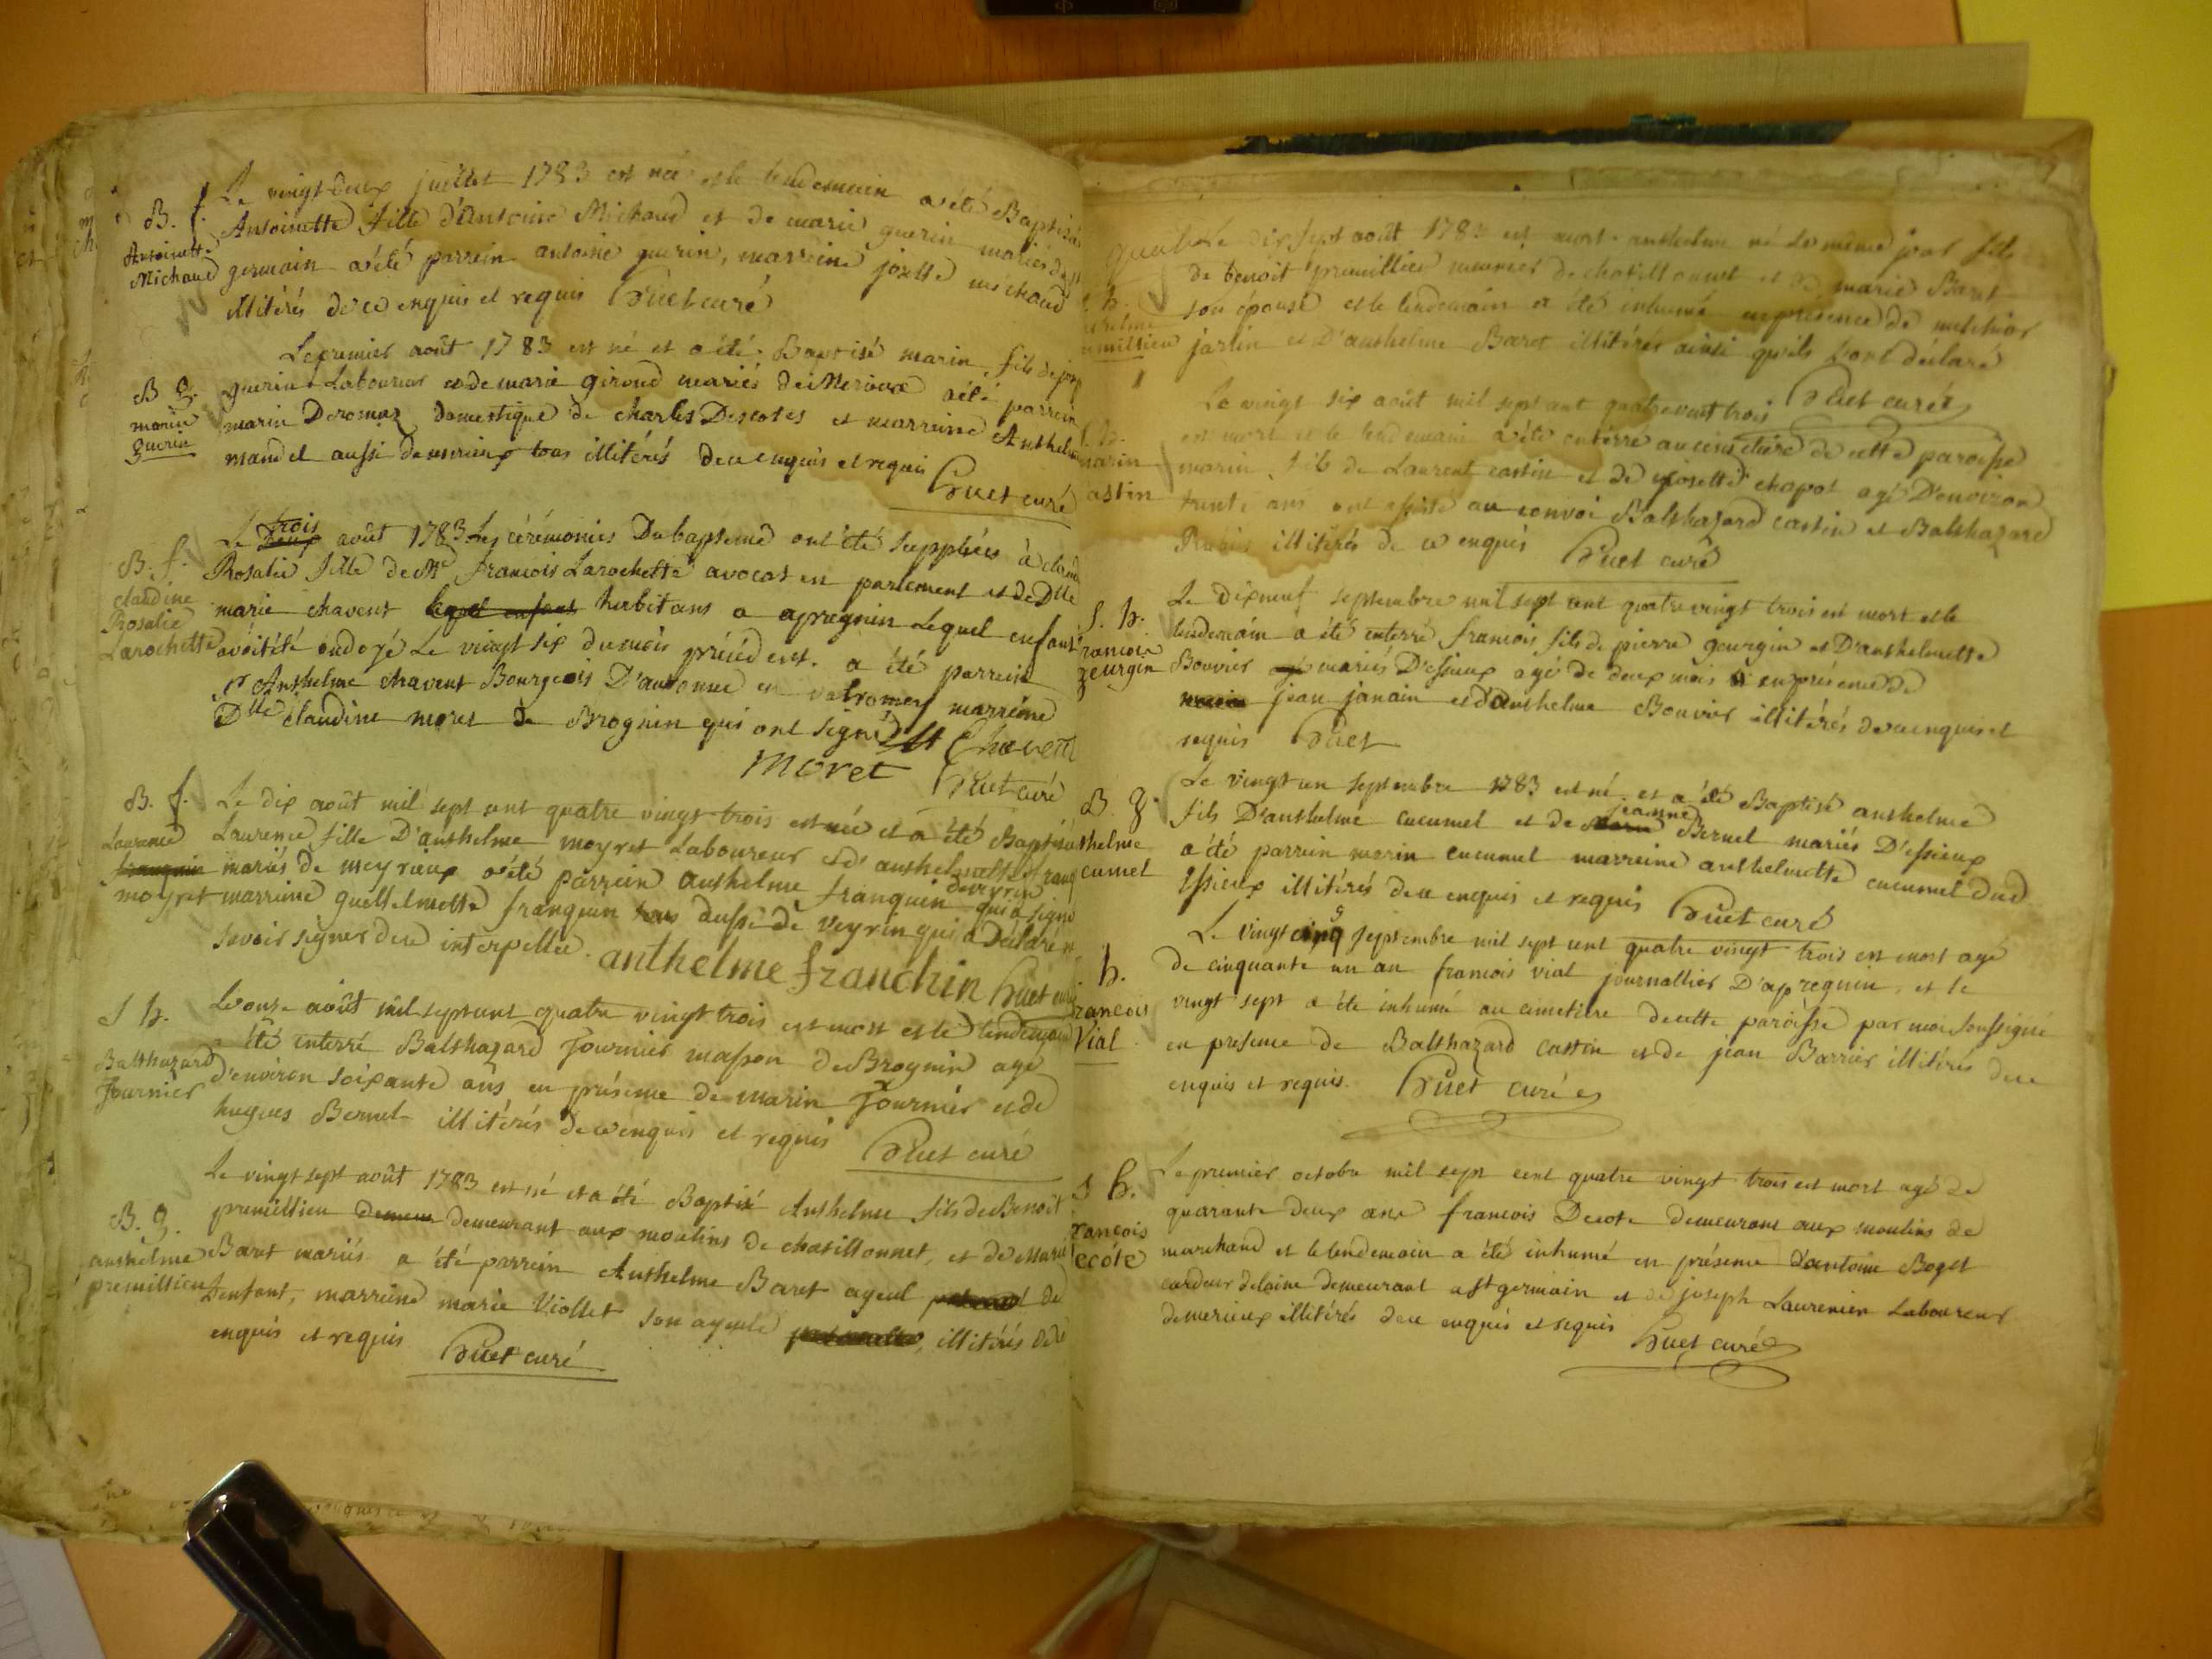 B. f.
Antoinette
Michaud
Le vingt deux juillet 1783 est née et le lendemain a été Baptisée
Antoinette fille d'Antoine Michaud et de marie guerin mariés de st
germain a été parrein antoine guerin, marreine josette michaud
illitérés de ce enquis et requis Huet curé
B g.
marin
guerin
Le premier août 1783 est né et a été Baptisé marin, fils de
guerin Laboureur et de marie giroud mariés de a été parrein
marin Deromaz domestique de charles Descotes et marreine Anthelme
mandel aussi de merieux tous illitérés de ce enquis et requis
Huet curé
B. f.
claudine
Rosalie
Larochette
Le trois août 1783 Les cérémonies Du bapteme ont été suppléés à
Rosalie fille de Me francois Larochette avocat en parlement et de Dlle
marie chavent habitans a apregnin Lequel enfant
avoit été ondoyé Le vingt six du mois précédent. a été parrein
Sr Anthelme chavent Bourgeois D'autonne en valromey marreine
Dlle claudine moret de Brognin qui ont signé
Moret Chavent
Huet curé
B. f.
Laurence
moyret
Le dix août mil sept cent quatre vingt trois est née et a été Baptisée
Laurence fille D'anthelme moyret Laboureur et d'anthelmette franq
mariés de meyrieux a été parrein anthelme franquin deveyrin qui a signé
marreine guellelmette franquin aussi de veyrin qui a Déclaré ne
savoir signer de ce interpellée. anthelme franchin Huet curé
S h.
Balthazard
Fournier
Le onze août mil sept cent quatre vingt trois est mort et le lendemain
été enterré Balthazard Fournier masson de Brognin agé
d'environ soixante ans en présence de marin Fournier et de
hugues Bernel illitérés de ce enquis et requis Huet curé
B. g.
anthelme
premillieu
Le vingt sept août 1783 est né et a été Baptisé Anthelme fils de Benoit
premillieu demeurant aux moulins de chatillonnet, et de Marie
Baret mariés a été parrein Anthelme Baret ayeul de
L'enfant, marreine marie Viollet son ayeule illitérés de ce
enquis et requis Huet curé
h.
Le dix sept août 1783 est mort anthelme né Le même jour fils
de benoit premillieu meunier de chatillonnet et de marie Baret
son épouse et le lendemain a été inhumé en présence de melchior
jarlin et D'anthelme Baret illitérés ainsi qu'ils L'ont déclaré
Huet curé
marin
astin
Le vingt six août mil sept cent quatre vingt trois
est mort et le lendemain a été enterré au cimetière de cette paroisse
marin fils de Laurent castin et de josette chapot agé D'environ
trente ans ont assisté au convoi Balthazard castin et Balthazard
illitérés de ce enquis Huet curé
S. h.
francois
georgin
Le dixneuf septembre mil sept cent quatre vingt trois est mort et le
lendemain a été enterré francois fils de pierre georgin et D'anthelmette
Bouvier mariés D'essieux agé de deux mois en présence de
jean janain et d'anthelme Bouvier illitérés de ce enquis et
requis Huet
B. g.
thelme
cumel
Le vingt un septembre 1783 est né et a été Baptisé anthelme
fils D'anthelme cucumel et de jeanne Bernel mariés D'essieux
a été parrein marin cucumel marreine anthelmette cucumel dud
Essieux illitérés de ce enquis et requis Huet curé
h.
rancois
Vial
Le vingt cinq septembre mil sept cent quatre vingt trois est mort agé
de cinquante un an francois vial journallier D'apregnin, et le
vingt sept a été inhumé au cimetiere de cette paroisse par moi soussigné
en presence de Balthazard castin et de jean Barrier illitérés de ce
enquis et requis. Huet curé
S h.
rancois
ecóte
Le premier octobre mil sept cent quatre vingt trois est mort agé de
quarante deux ans francois Decote demeurant aux moulins de
marchand et le lendemain a été inhumé en présence d'antoine Boget
cardeur de laine demeurant a st germain et de joseph Laurencin Laboureur
de merieux illitérés de ce enquis et requis
Huet curé